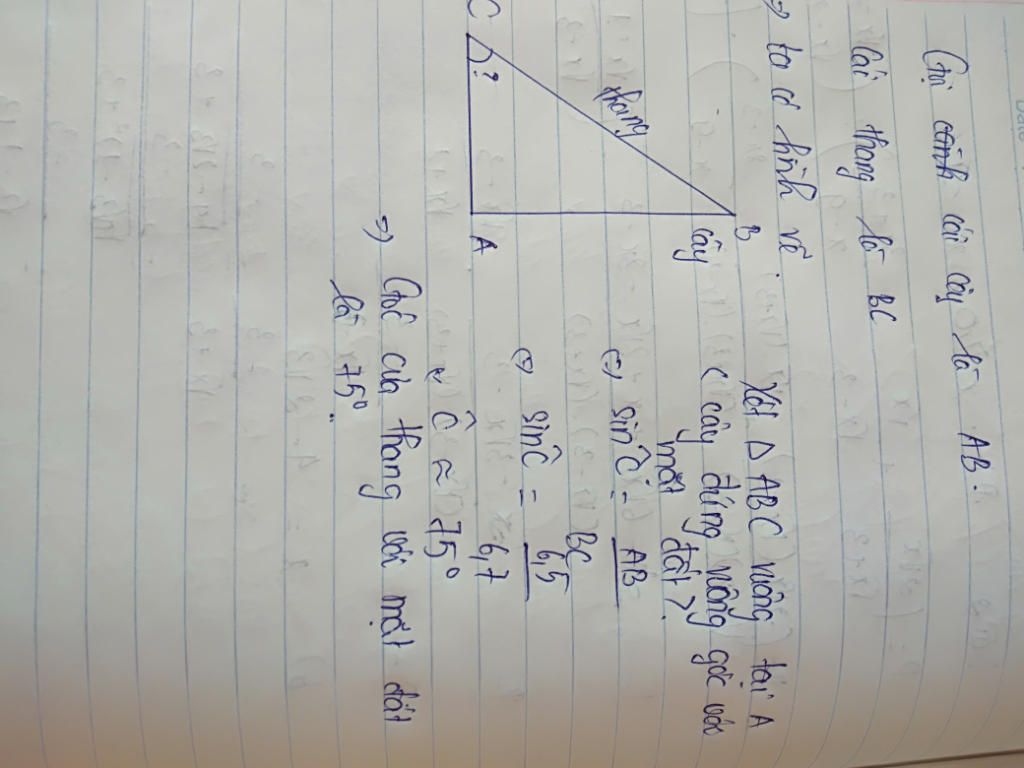 Gọi cành cái cây là AB.
Cái thang là BC
=> ta có hình vẽ :
B
cây
thang
C
?
A
Xét Δ ABC vuông tại A
< cây đứng vuông góc với
mặt đất >.
(=) sin Ĉ = AB
BC
(=) sin Ĉ = 6,5
6,7
Ĉ ≈ 75°
=) Góc của thang với mặt đất
là 75°.